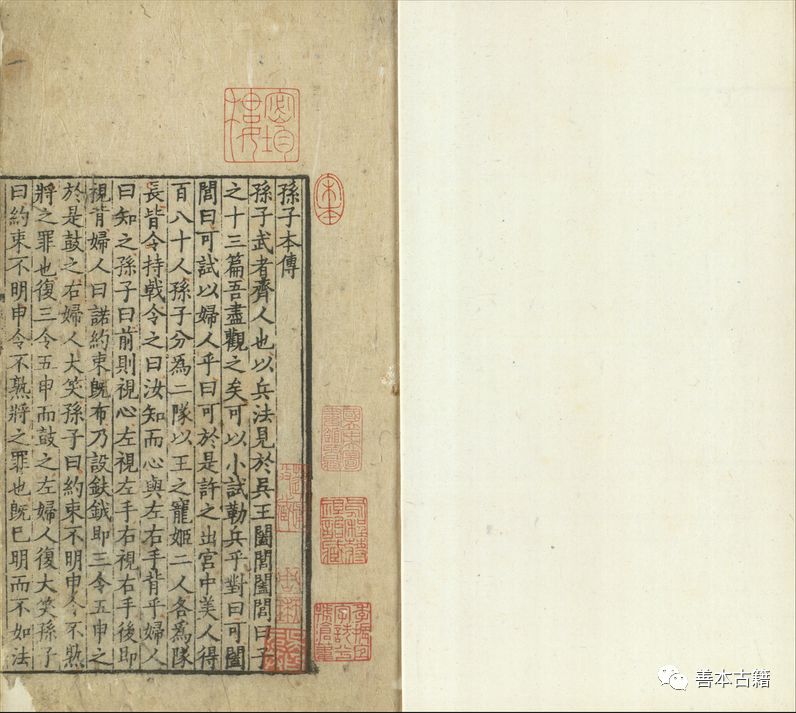 密韻樓
宋本
孫子本傳
孫子武者齊人也以兵法見於吳王闔閭闔閭曰子
之十三篇吾盡觀之矣可以小試勒兵乎對曰可闔
閭曰可試以婦人乎曰可於是許之出宮中美人得
百八十人孫子分爲二隊以王之寵姬二人各爲隊
長皆令持戟令之曰汝知而心與左右手背乎婦人
曰知之孫子曰前則視心左視左手右視右手後即
視背婦人曰諾約束既布乃設鈇鉞即三令五申之
於是鼓之右婦人大笑孫子曰約束不明申令不熟
將之罪也復三令五申而鼓之左婦人復大笑孫子
曰約束不明申令不熟將之罪也既已明而不如法
善本古籍